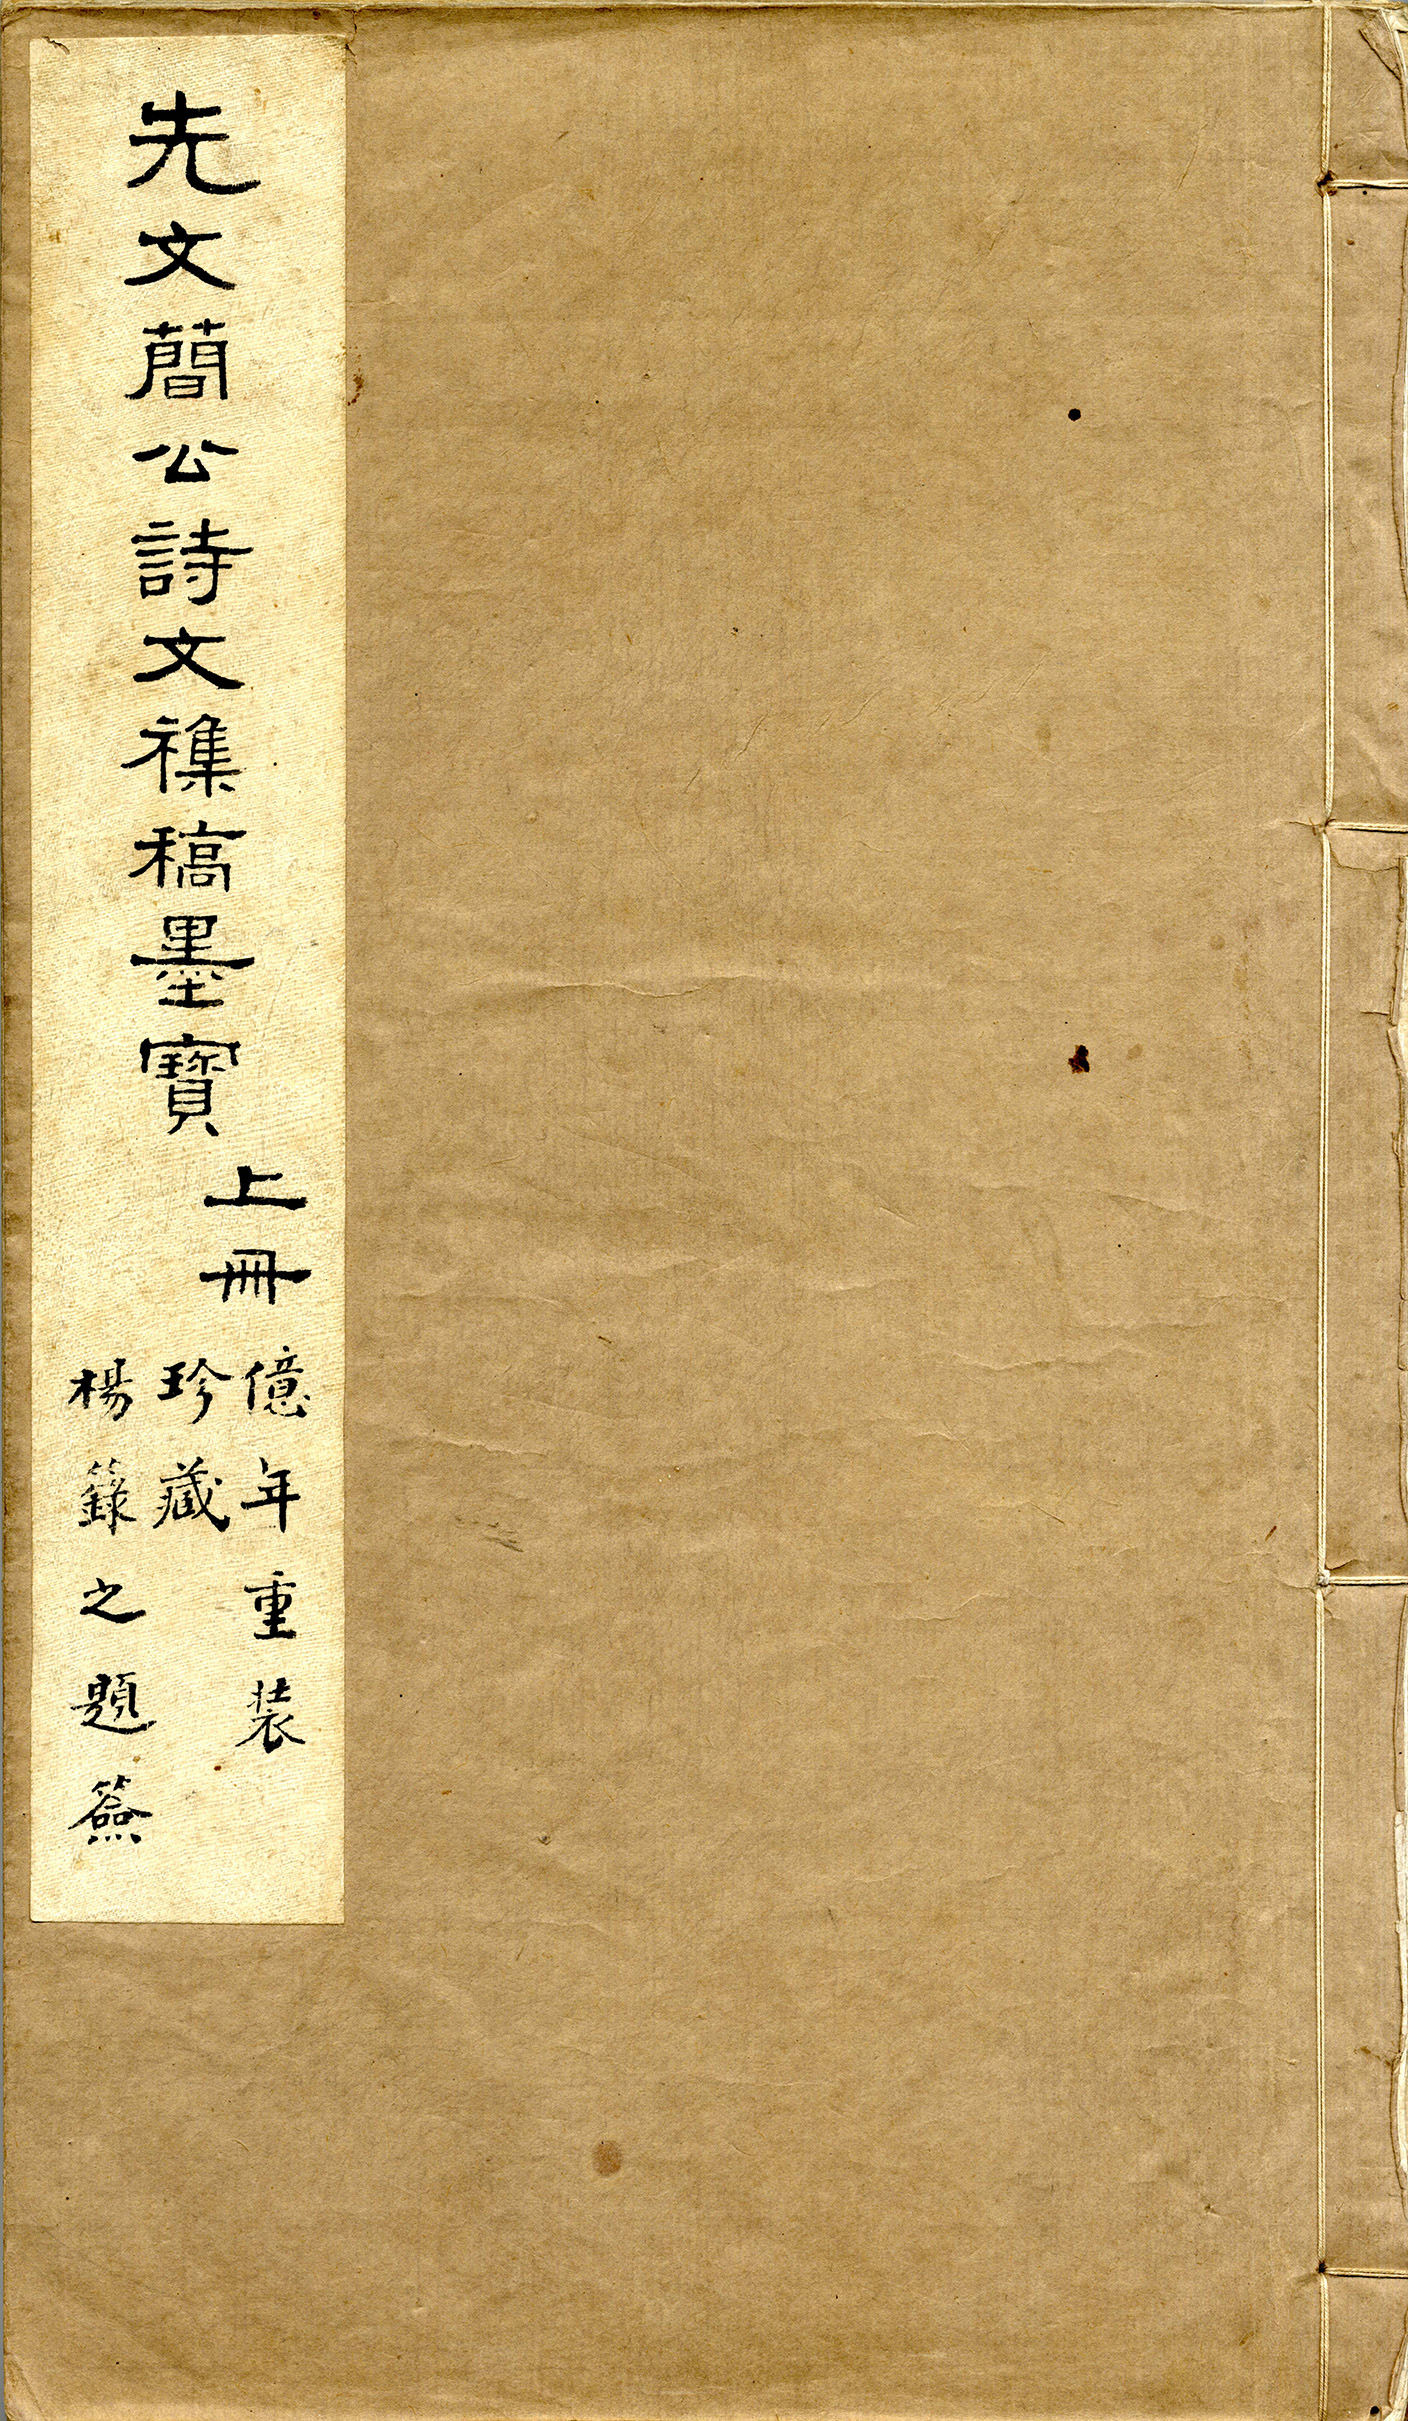 先文簡公詩文襍稿墨寶
上冊
億年重装
珍藏
楊籙之題簽